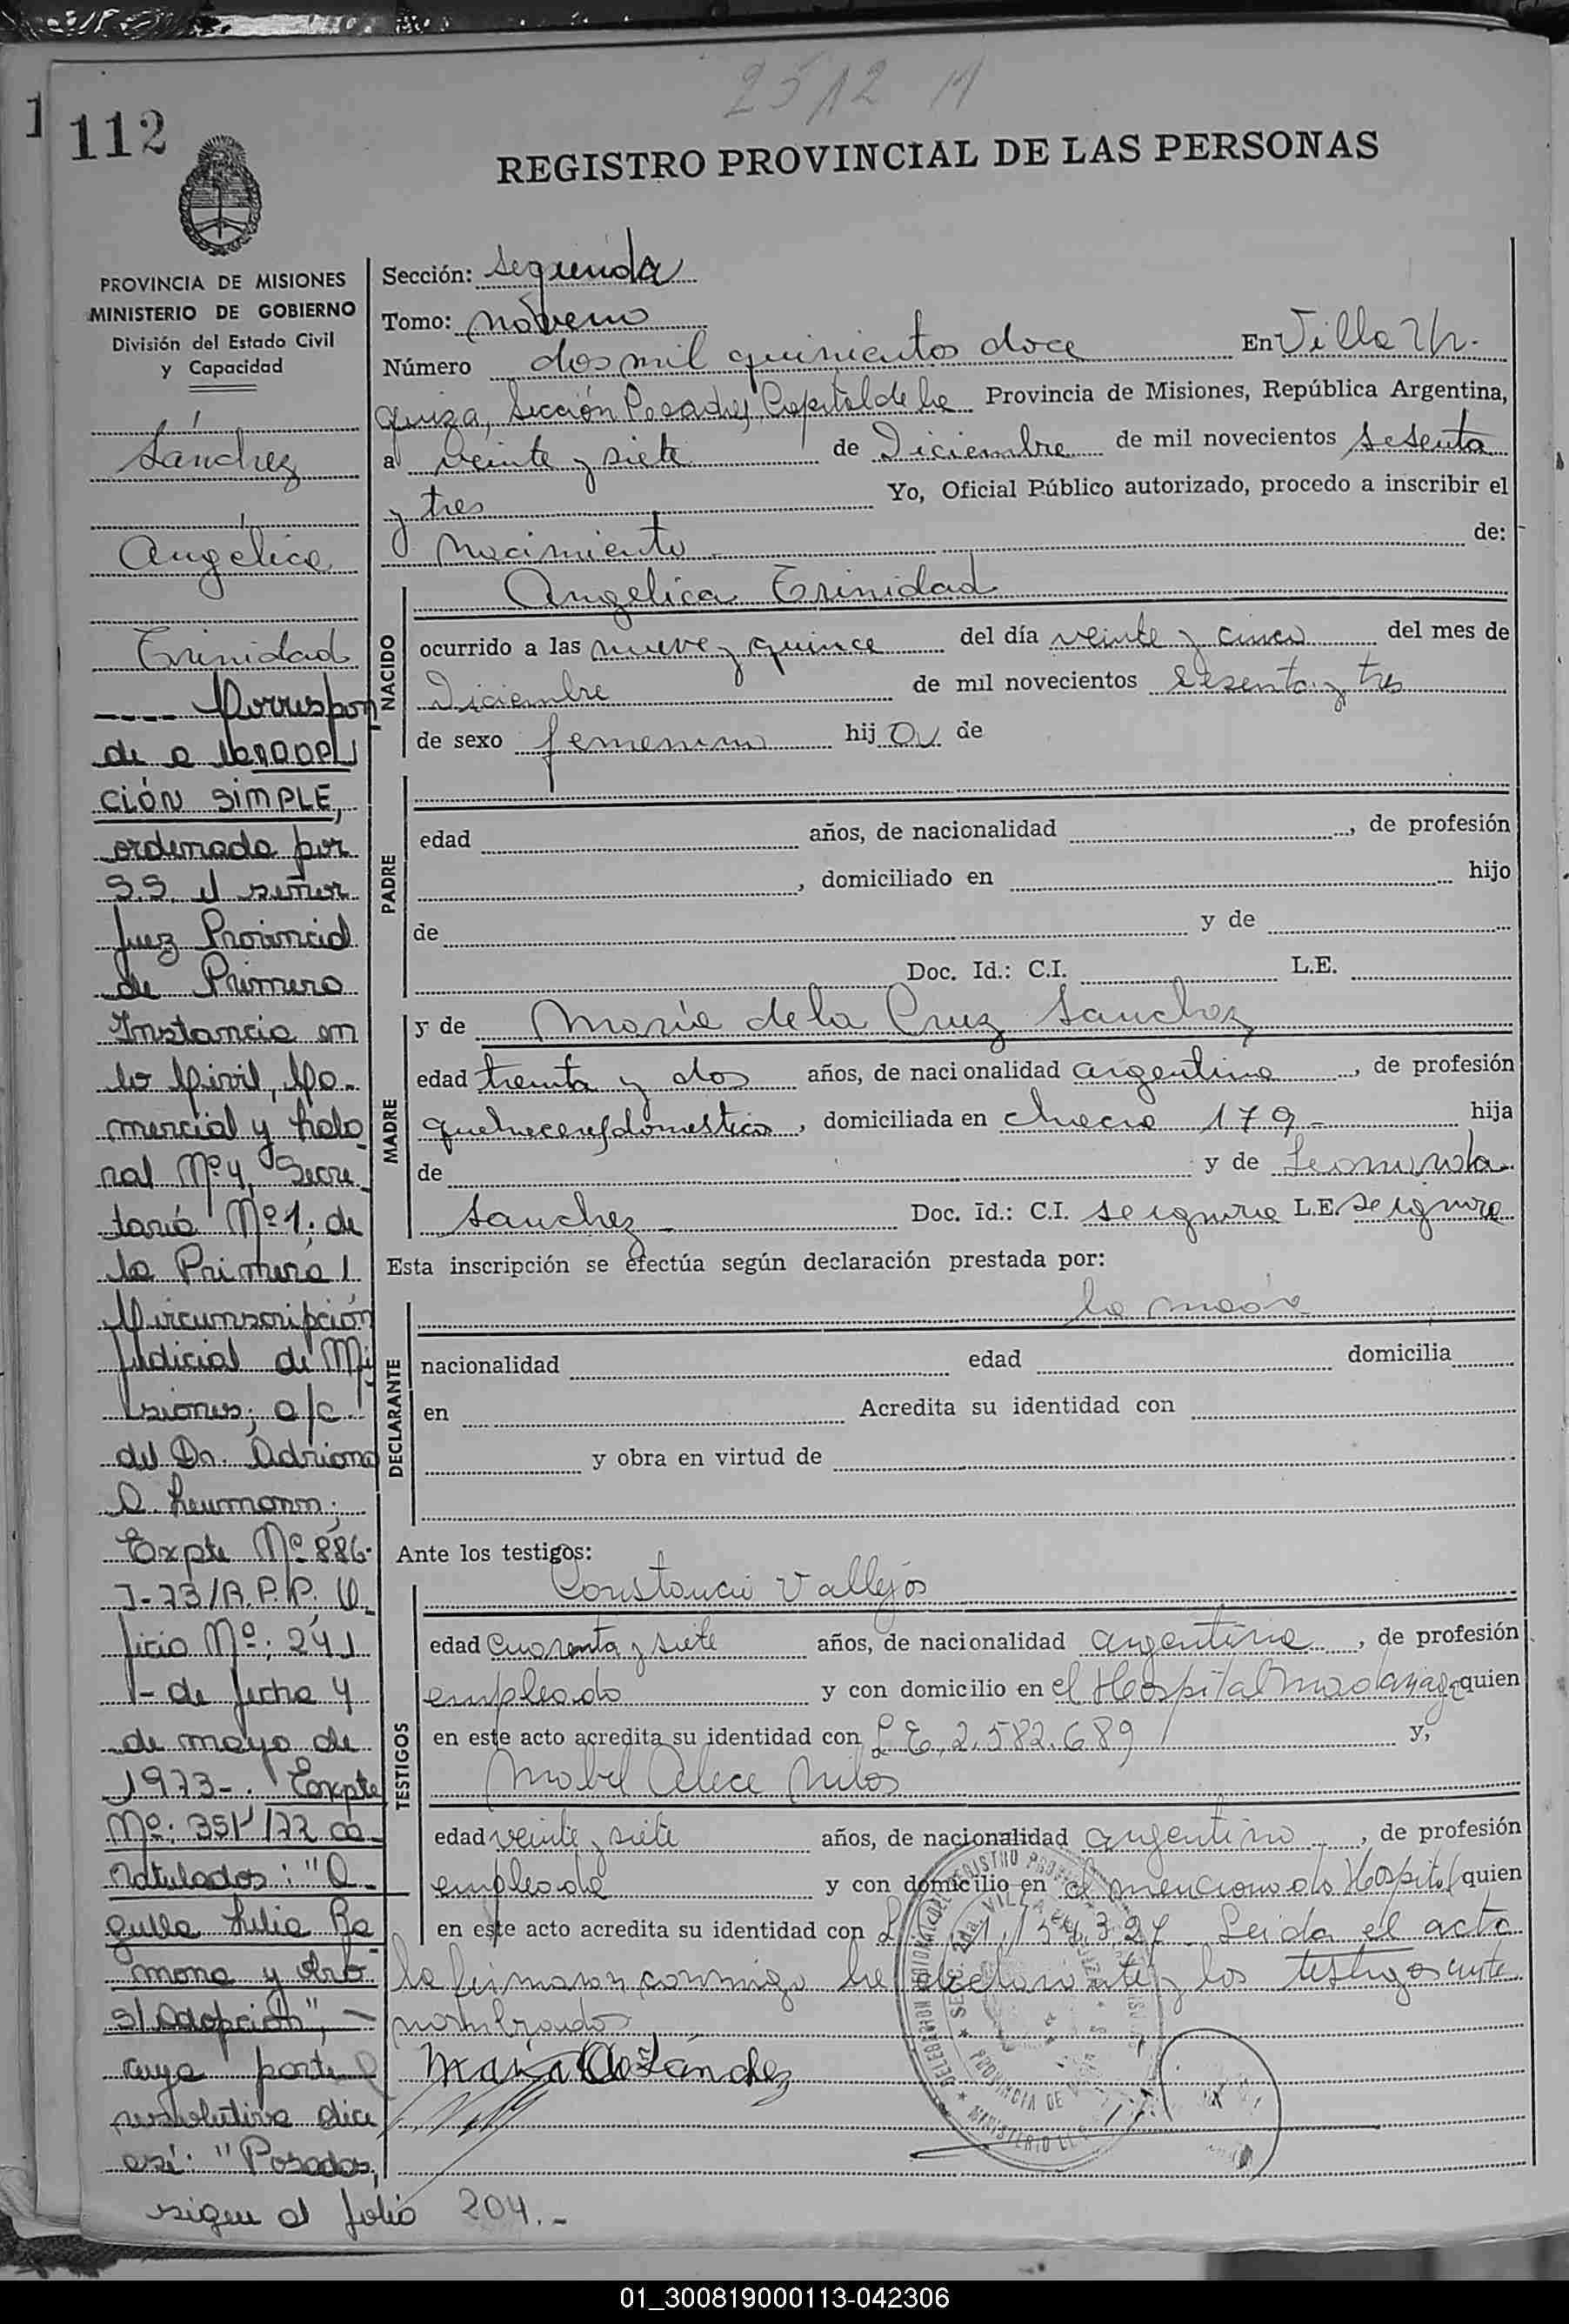 25 12
112
REGISTRO PROVINCIAL DE LAS PERSONAS
PROVINCIA DE MISIONES
MINISTERIO DE GOBIERNO
División del Estado Civil
y Capacidad
Sánchez
Angélica
Trinidad
---- Correspon
de a
CIÓN SIMPLE,
ordenada por
S.S. el señor
Juez Provincial
de Primera
Instancia en
lo Civil, Co-
mercial y Labo
ral Nº 4, Secre
taría Nº 1, de
la Primera
Circunscripción
Judicial de Mi
siones; a/c
del Dr. Adriano
Expte Nº 886-
J-73/R.P.P. O
ficio Nº: 241
- de fecha 4
de mayo de
1973-. Expte
Nº: 351/72 ca
ratulados: "A
guilla Julia Ra
mona y otro
s/ Adopción", -
cuya parte
resolutiva dice
así: "Posadas,
sigue al folio 204.-
Sección: segunda
Tomo: noveno
Número dos mil quinientos doce En Villa Ur-
quiza, Sección Posadas, Capital de la Provincia de Misiones, República Argentina,
a veinte y siete de Diciembre de mil novecientos sesenta
y tres Yo, Oficial Público autorizado, procedo a inscribir el
nacimiento de:
NACIDO
Angelica Trinidad
ocurrido a las nueve y quince del día veinte y cinco del mes de
Diciembre de mil novecientos sesenta y tres
de sexo femenino hij a de
PADRE
edad años, de nacionalidad , de profesión
, domiciliado en hijo
de y de
Doc. Id.: C.I. L.E.
MADRE
y de María de la Cruz Sanchez
edad treinta y dos años, de nacionalidad argentina , de profesión
quehaceres domesticos , domiciliada en chacra 179 - hija
de y de
Sanchez - Doc. Id.: C.I. se ignora L.E. se ignora
Esta inscripción se efectúa según declaración prestada por:
DECLARANTE
la madre
nacionalidad edad domicilia
en Acredita su identidad con
y obra en virtud de
Ante los testigos:
TESTIGOS
Constancio Vallejos
edad cuarenta y siete años, de nacionalidad argentina , de profesión
empleado y con domicilio en el Hospital Madariaga quien
en este acto acredita su identidad con L.E. 2.582.689 y,
Mabel
edad veinte y siete años, de nacionalidad argentino , de profesión
empleada y con domicilio en el mencionado Hospital quien
en este acto acredita su identidad con Leida el acta
la firmaron conmigo la declarante y los testigos ante
nombrados
María C Sánchez
01_300819000113-042306